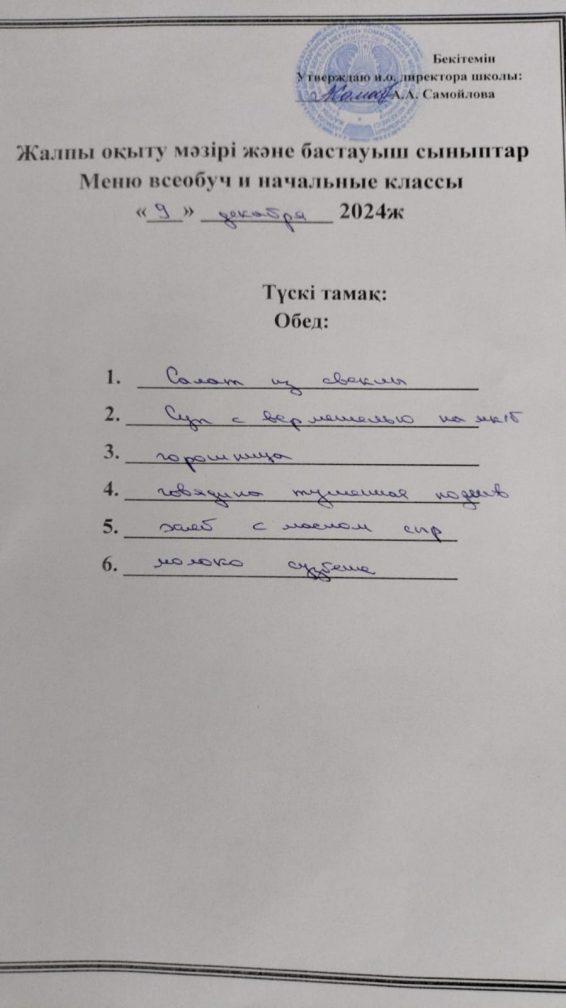 Бекітемін
Утверждаю и.о. директора школы:
А.А. Самойлова
Жалпы оқыту мәзірі және бастауыш сыныптар
Меню всеобуч и начальные классы
« 9 » декабря 2024ж
Түскі тамақ:
Обед:
1. Салат из свеклы
2. Суп с вермешелью на мкб
3. горошница
4. говядина тушенная подлив
5. хлеб с маслом сыр
6. молоко сүзбеше